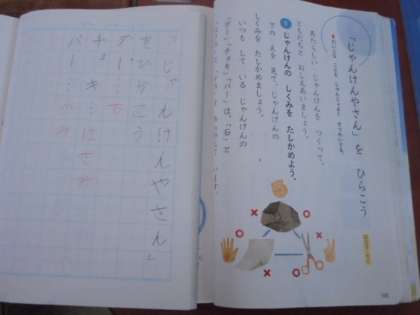 「じゃんけんやさん」を ひらこう
あたらしい じゃんけんを つくって、
ともだちと おしえあいましょう。
1 じゃんけんの しくみを たしかめよう。
下の えを 見て、じゃんけんの
しくみを たしかめましょう。
いつも して いる じゃんけんの
「グー」「チョキ」「パー」は、「石」と
「じゃんけんやさん」
をひらこう
グー…石
チョキ…はさみ
パー…かみ